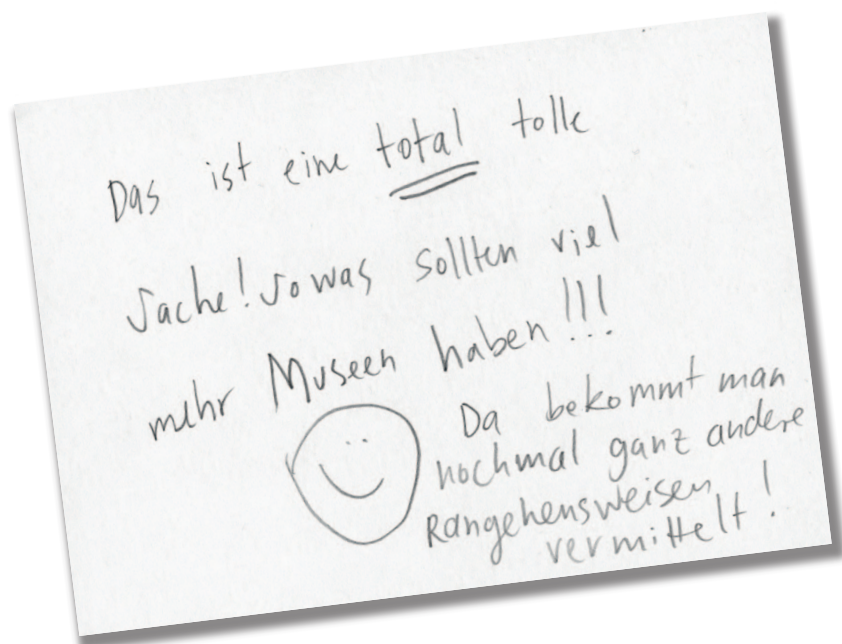 Das ist eine total tolle
Sache! Sowas sollten viel
mehr Museen haben!!!
Da bekommt man
nochmal ganz andere
Rangehensweisen
vermittelt!